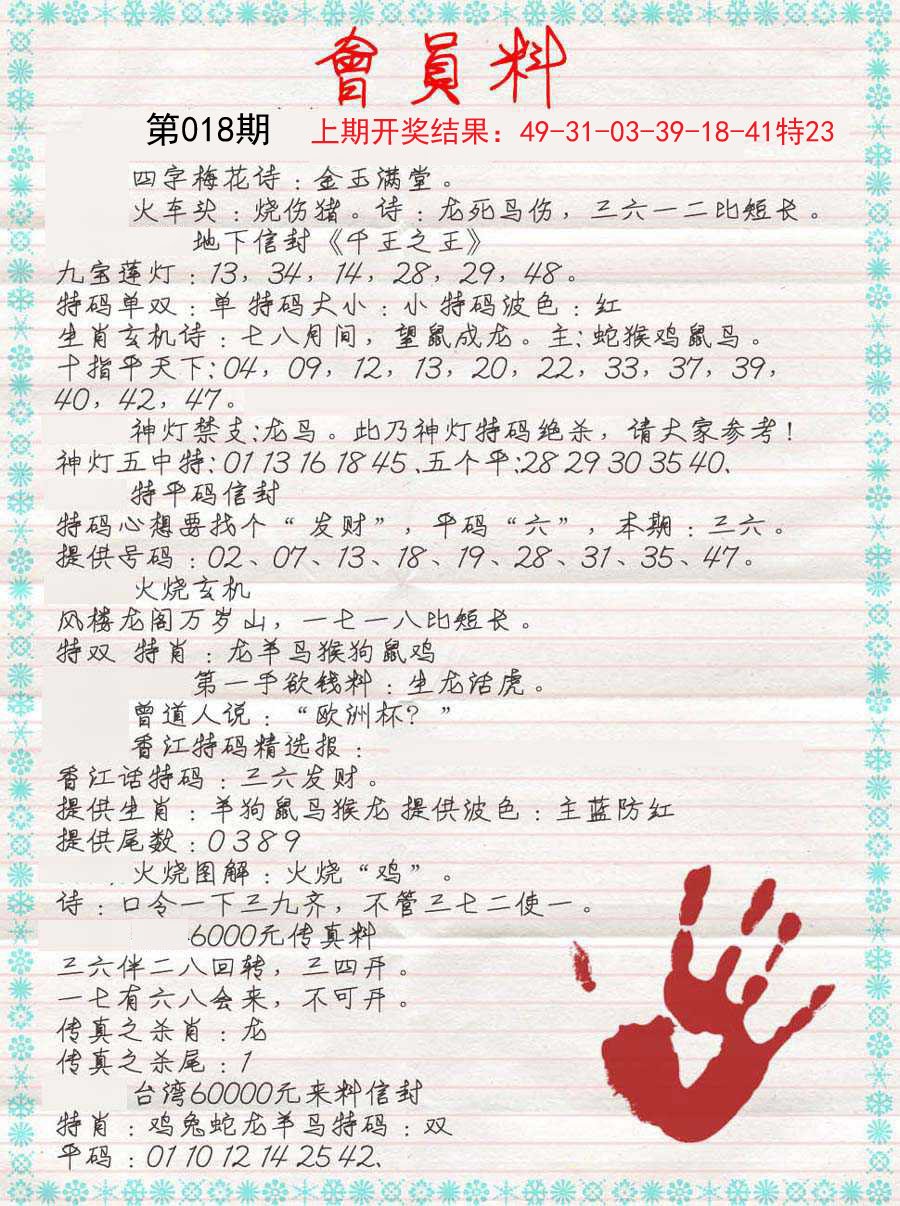 會員料
第018期 上期开奖结果：49-31-03-39-18-41特23
四字梅花诗：金玉满堂。
火车头：烧伤猪。诗：龙死鸟伤，三六一二比短长。
地下信封《千王之王》
九宝莲灯：13，34，14，28，29，48。
特码单双：单 特码大小：小 特码波色：红
生肖玄机诗：七八月间，望鼠成龙。主：蛇猴鸡鼠鸟。
十指平天下：04，09，12，13，20，22，33，37，39，
40，42，47。
神灯禁支：龙鸟。此乃神灯特码绝杀，请大家参考！
神灯五中特：01 13 16 18 45、五个平：28 29 30 35 40、
特平码信封
特码心想要找个“发财”，平码“六”，本期：三六。
提供号码：02、07、13、18、19、28、31、35、47。
火烧玄机
风楼龙阁万岁山，一七一八比短长。
特双 特肖：龙羊鸟猴狗鼠鸡
第一手欲钱料：生龙活虎。
曾道人说：“欧洲杯？”
香江特码精选报：
香江话特码：三六发财。
提供生肖：羊狗鼠鸟猴龙 提供波色：主蓝防红
提供尾数：0 3 8 9
火烧图解：火烧“鸡”。
诗：口令一下三九齐，不管三七二使一。
6000元传真料
三六伴二八回转，三四开。
一七有六八会来，不可开。
传真之杀肖：龙
传真之杀尾：1
台湾60000元来料信封
特肖：鸡兔蛇龙羊鸟特码：双
平码：01 10 12 14 25 42、